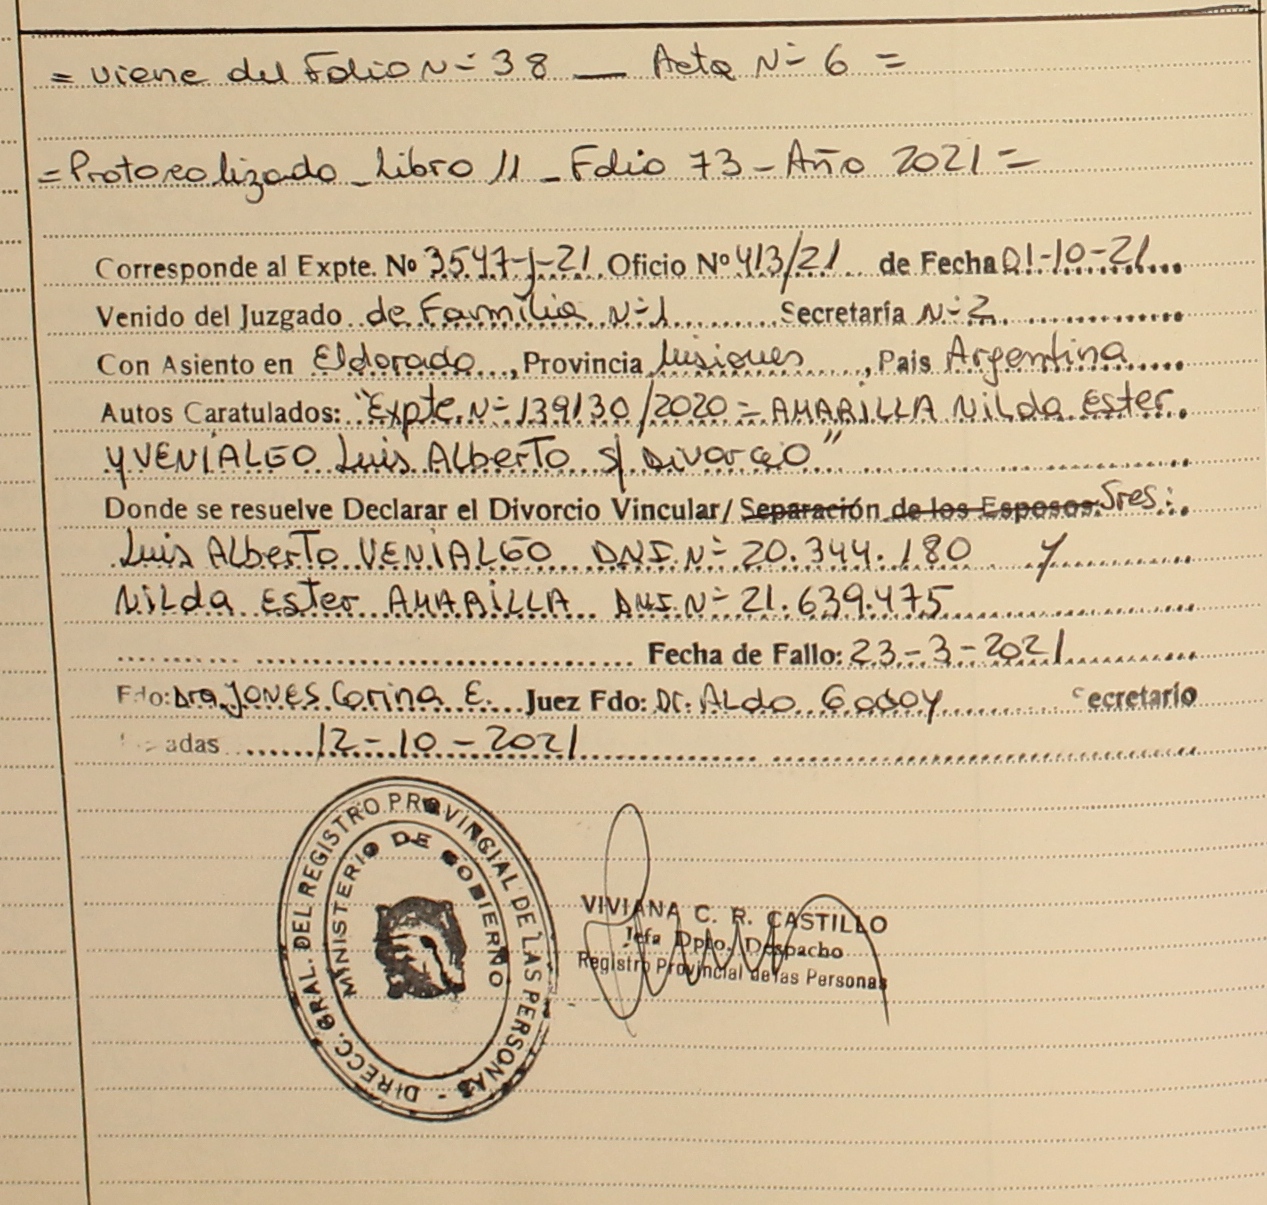 = viene del Folio N- 38 — Acta N- 6 =
= Protocolizado - Libro 11 - Folio 73 - Año 2021 =
Corresponde al Expte. Nº 3547-J-21 Oficio Nº 413/21 de Fecha 01-10-21
Venido del Juzgado de Familia N-1 Secretaría N-2
Con Asiento en Eldorado, Provincia Misiones, Pais Argentina
Autos Caratulados: "Expte. N- 139130/2020 - AMARILLA Nilda Ester
y VENIALGO Luis Alberto s/ Divorcio"
Donde se resuelve Declarar el Divorcio Vincular/ Separación de los Esposos: Sres:
Luis Alberto VENIALGO DNI. N- 20.344.180 y
Nilda Ester AMARILLA DNI. N- 21.639.475
Fecha de Fallo: 23-3-2021
Fdo: Dra. JONES Corina E. Juez Fdo: Dr. Aldo Godoy Secretario
adas 12-10-2021
DIRECC. GRAL. DEL REGISTRO PROVINCIAL DE LAS PERSONAS -
MINISTERIO DE GOBIERNO
VIVIANA C. R. CASTILLO
Jefa Dpto. Despacho
Registro Provincial de las Personas